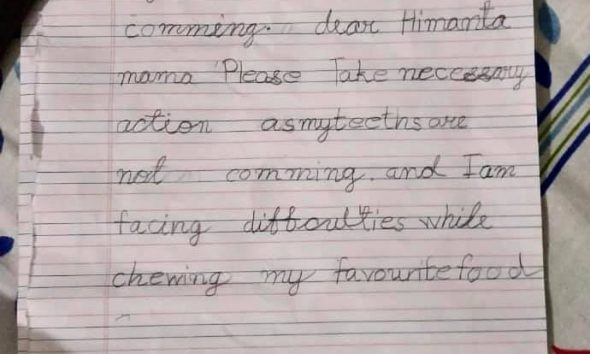 comming. dear Himanta
mama Please Take necessary
action asmyteeths are
not comming. and I am
facing diffoulties while
chewing my favourite food